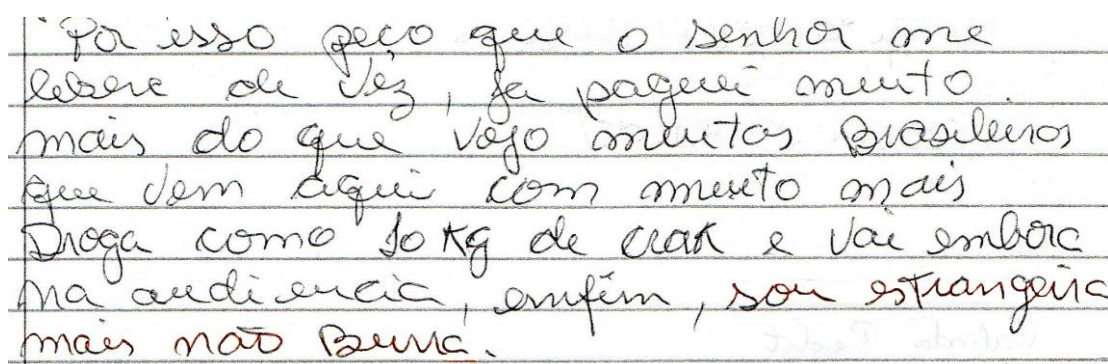 Por isso peço que o senhor me
libere de vez, ja paguei muito
mais do que vejo muitos Brasileiros
que vem aqui com muito mais
Droga como 10 Kg de crak e vai embora
na audiencia, emfim, sou estrangeira
mais não Burra.